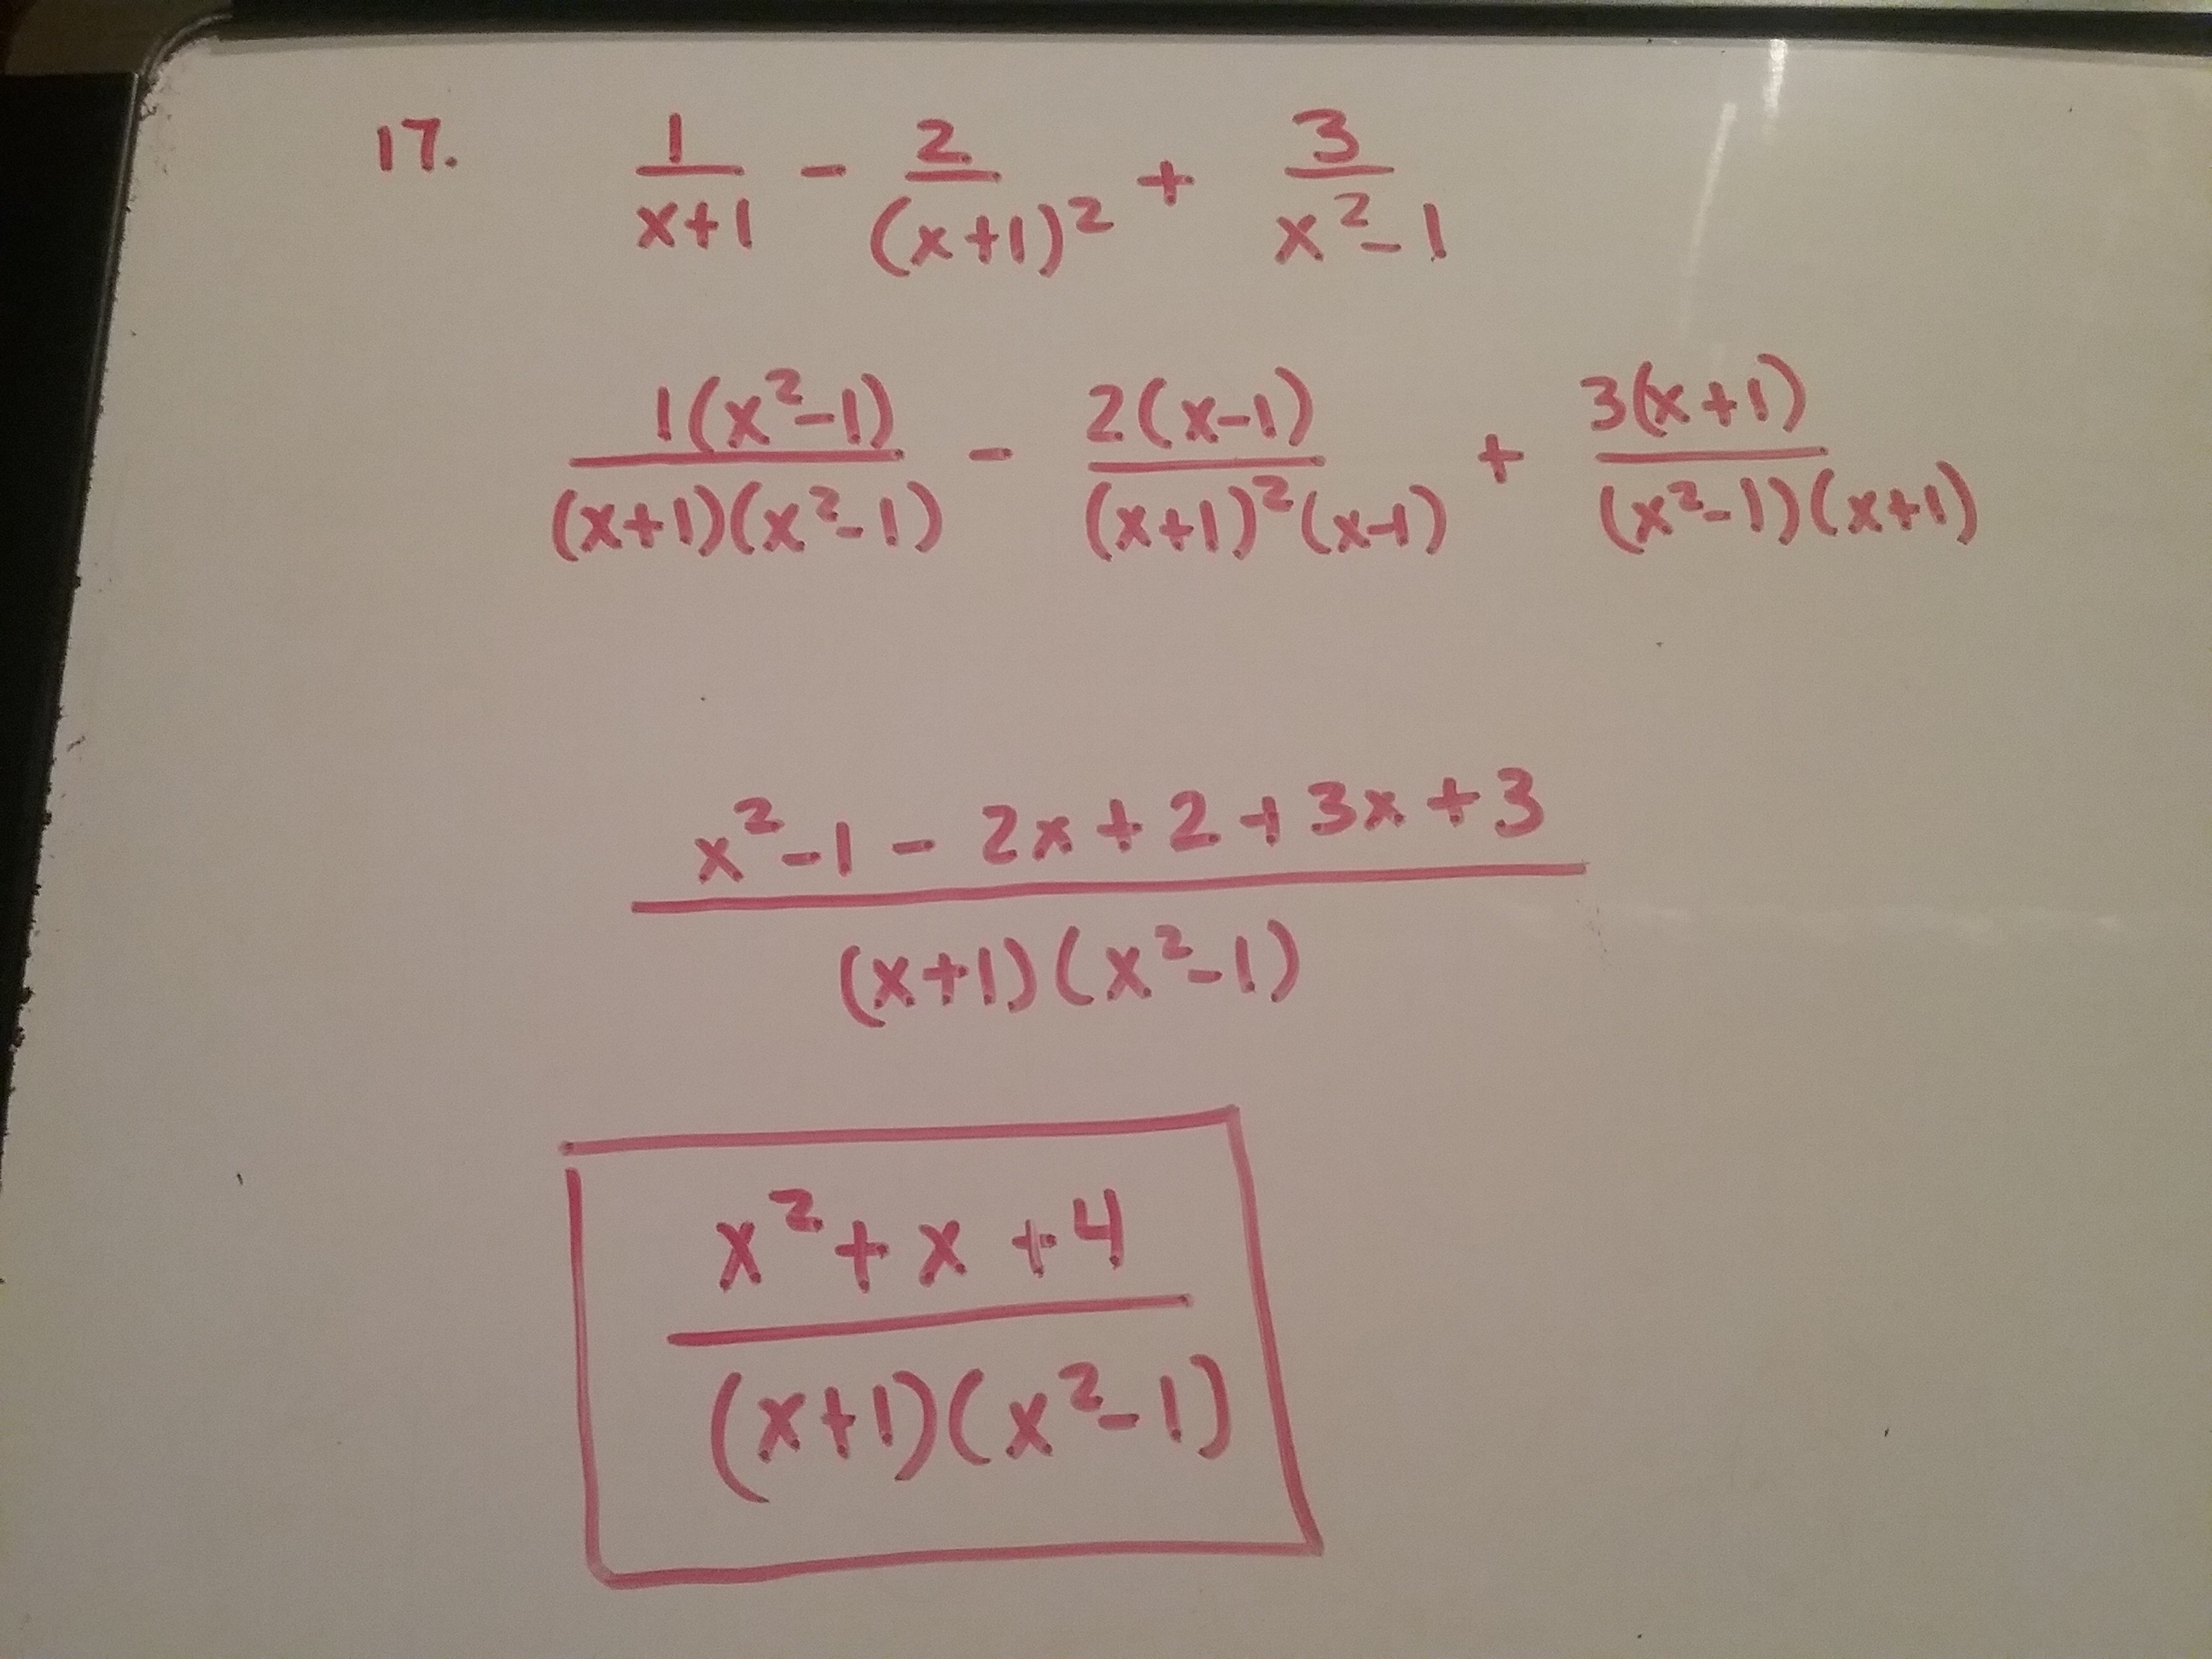 17. 1/(x+1) - 2/(x+1)² + 3/(x²-1)
1(x²-1)/((x+1)(x²-1)) - 2(x-1)/((x+1)²(x-1)) + 3(x+1)/((x²-1)(x+1))
(x²-1-2x+2+3x+3)/((x+1)(x²-1))
(x²+x+4)/((x+1)(x²-1))